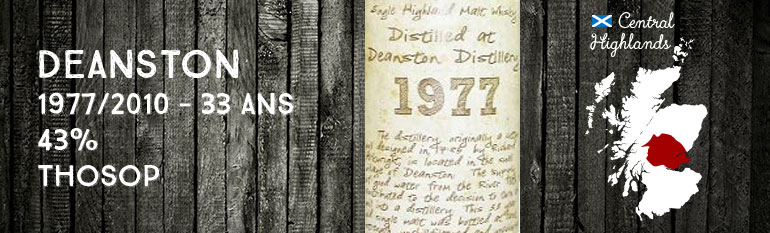 DEANSTON
1977/2010 - 33 ANS
43%
THOSOP
Single Highland Malt Whisky
Distilled at
Deanston Distillery
1977
The distillery, originally a
designed in by Richard
is located in the
of Deanston. The
good water from the River
to the decision to
a distillery. This 33
single malt was bottled at
Central
Highlands